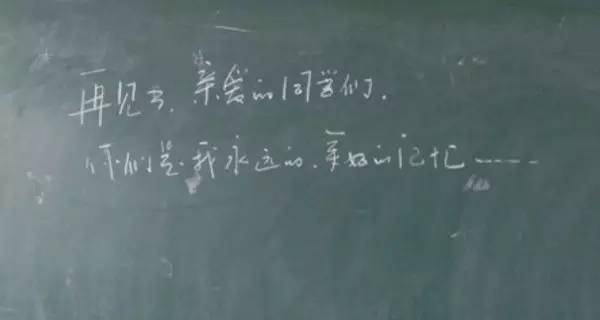 再见了，亲爱的同学们，
你们是我永远的、美好的记忆……